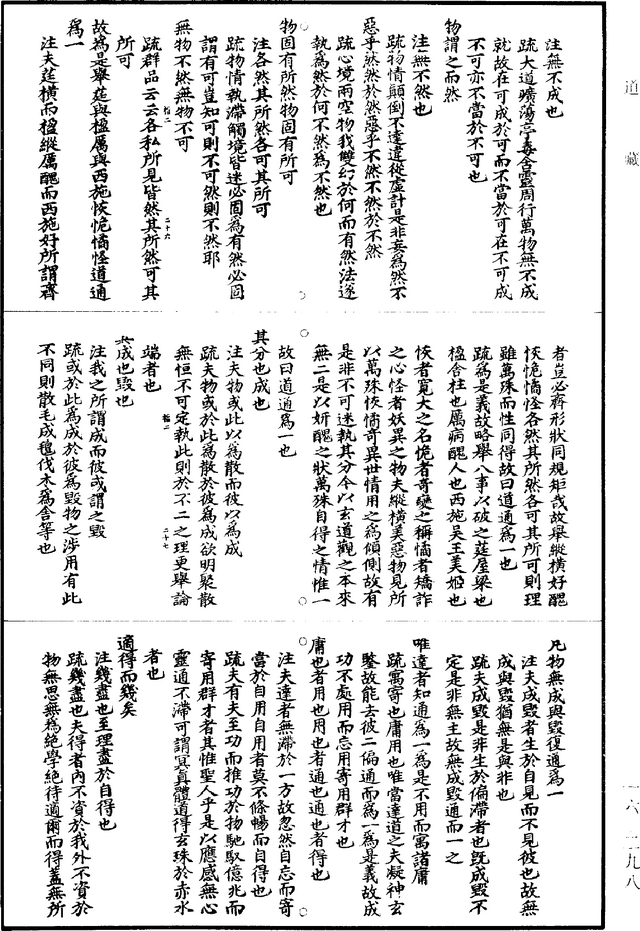 道藏
注無不成也
疏大道曠蕩亭毒含靈周行萬物無不成
就故在可成於可而不當於可在不可成
不可亦不當於不可也
物謂之而然
注無不然也
疏物情顛倒不達違從虛計是非妄為然不
惡乎然然於然惡乎不然不然於不然
疏心境兩空物我雙幻於何而有然法遂
執為然於何不然為不然也
物固有所然物固有所可
注各然其所然各可其所可
疏物情執滯觸境皆迷必固為有然必固
謂有可豈知可則不可然則不然耶
無物不然無物不可
疏群品云云各私所見皆然其所然可其
所可
故為是舉莛與楹厲與西施恢恑憰怪道通
為一
注夫莛橫而楹縱厲醜而西施好所謂齊
者豈必齊形狀同規矩哉故舉縱橫好醜
恢恑憰怪各然其所然各可其所可則理
雖萬殊而性同得故曰道通為一也
疏為是義故略舉八事以破之莛屋梁也
楹舍柱也厲病醜人也西施吳王美姬也
恢者寬大之名恑者奇變之稱憰者矯詐
之心怪者妖異之物夫縱橫美惡物見所
以萬殊恢憰奇異世情用之為傾側故有
是非不可迷執其分今以玄道觀之本來
無二是以妍醜之狀萬殊自得之情惟一
故曰道通為一也
其分也成也
注夫物或此以為散而彼以為成
疏夫物或於此為散於彼為成欲明聚散
無恒不可定執此則於不二之理更舉論
端者也
其成也毀也
注我之所謂成而彼或謂之毀
疏或於此為成於彼為毀物之涉用有此
不同則散毛成氊伐木為舍等也
凡物無成與毀復通為一
注夫成毀者生於自見而不見彼也故無
成與毀猶無是與非也
疏夫成毀是非生於偏滯者也既成毀不
定是非無主故無成毀通而一之
唯達者知通為一為是不用而寓諸庸
疏寓寄也庸用也唯當達道之夫凝神玄
鑒故能去彼二偏通而為一為是義故成
功不處用而忘用寄用群才也
庸也者用也用也者通也通也者得也
注夫達者無滯於一方故忽然自忘而寄
當於自用自用者莫不條暢而自得也
疏夫有夫至功而推功於物馳馭億兆而
寄用群才者其惟聖人乎是以應感無心
靈通不滯可謂冥真體道得玄珠於赤水
者也
適得而幾矣
注幾盡也至理盡於自得也
疏幾盡也夫得者內不資於我外不資於
物無思無為絕學絕待適爾而得蓋無所
一六·二九八